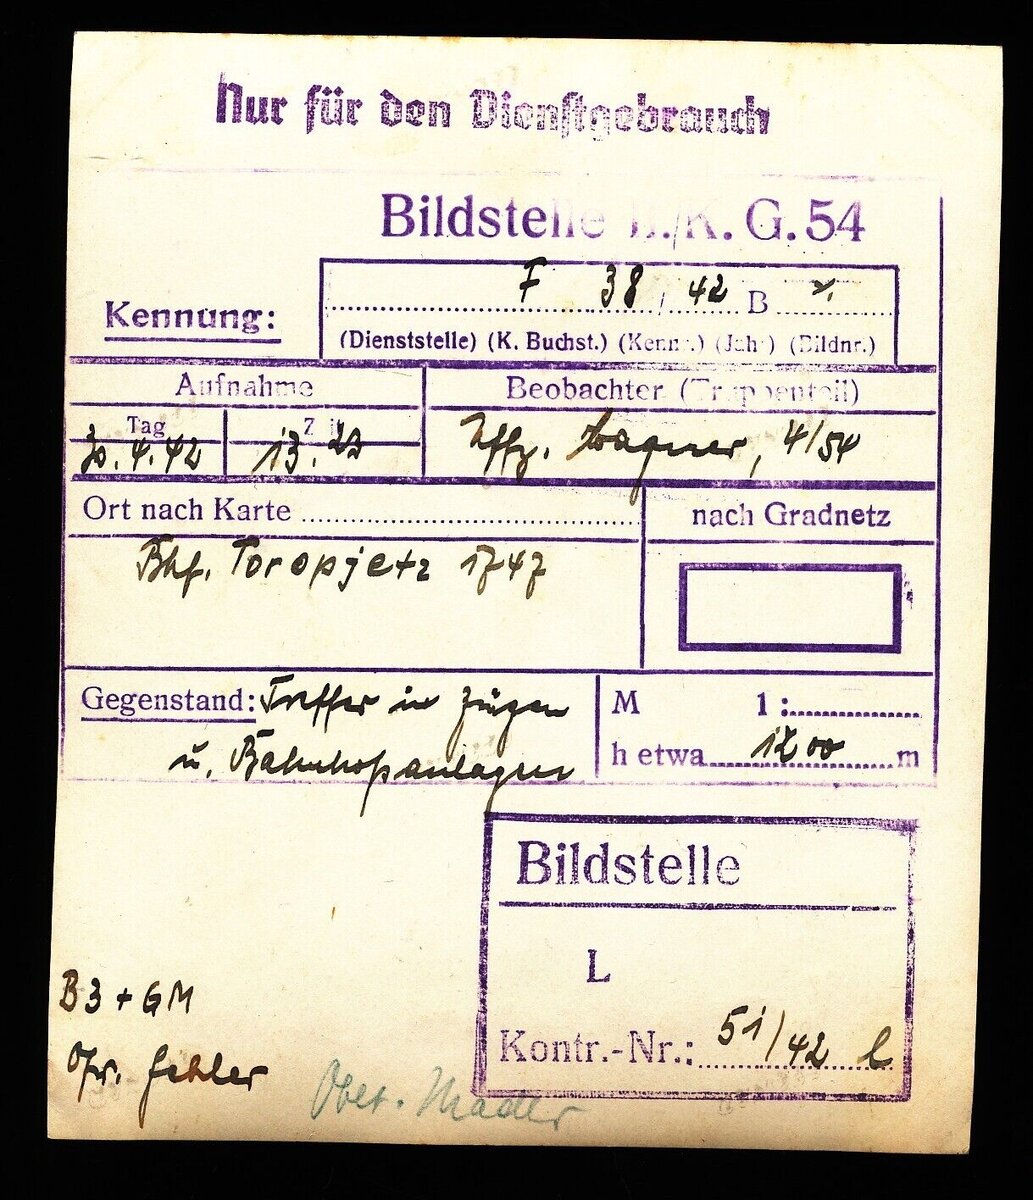 Nur für den Dienstgebrauch
Bildstelle /K. G. 54
Kennung:
F 38 / 42 B
(Dienststelle) (K. Buchst.) (Kenn.) (Jahr) (Bildnr.)
Aufnahme
Beobachter (Truppenteil)
Tag
Zeit
30. 4. 42
13.
Uffz. Wagner, 4/54
Ort nach Karte
nach Gradnetz
Bhf. Toropjetz 1747
Gegenstand: Treffer in Zügen
u. Bahnhofsanlagen
M 1 :
h etwa 1200 m
Bildstelle
L
Kontr.-Nr.: 51/42 b
B3 + GM
Mader